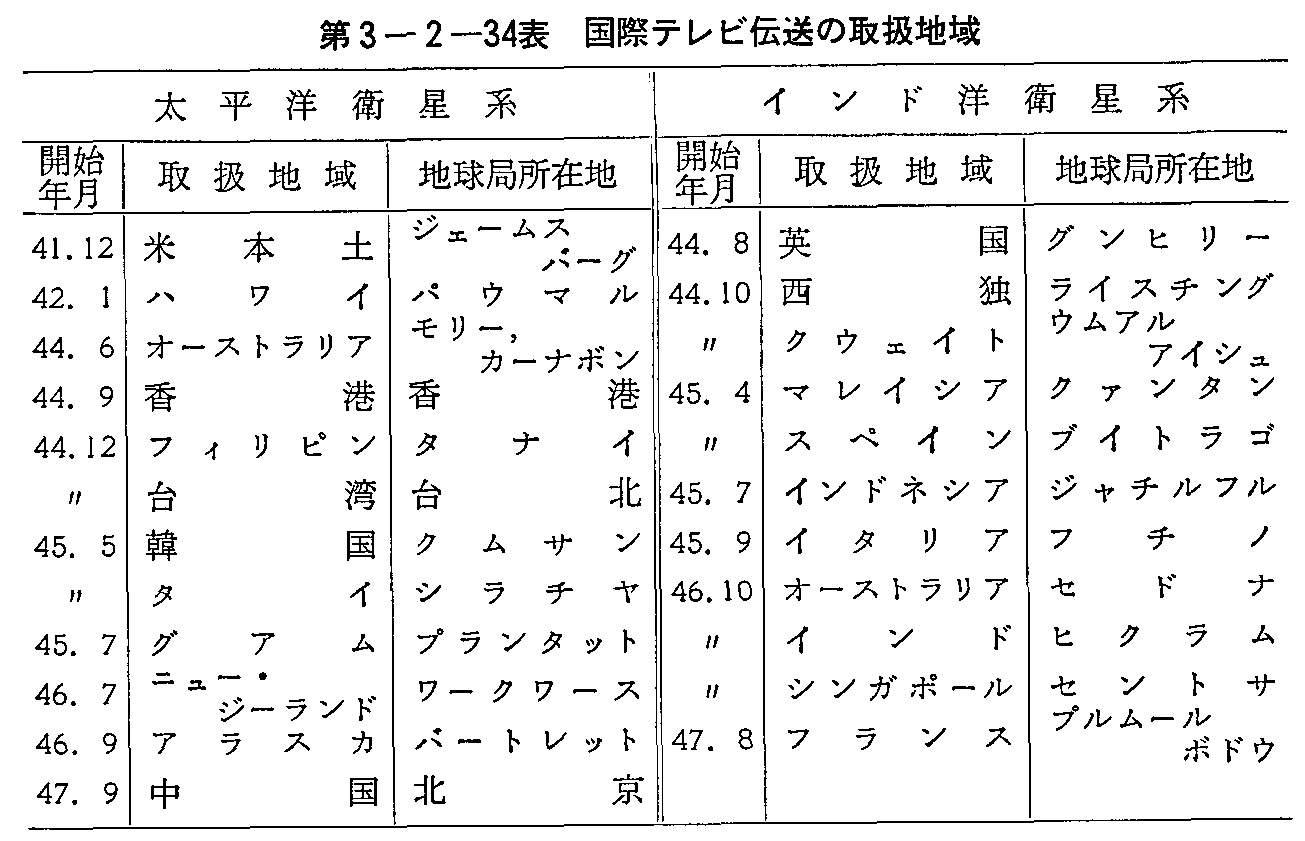 第3-2-34表 国際テレビ伝送の取扱地域
太平洋衛星系 インド洋衛星系
開始年月 取扱地域 地球局所在地 開始年月 取扱地域 地球局所在地
41.12 米本土 ジェームスバーグ 44. 8 英国 グンヒリー
42. 1 ハワイ パウマル 44.10 西独 ライスチング
44. 6 オーストラリア モリー,カーナボン 〃 クウェイト ウムアルアイシュ
44. 9 香港 香港 45. 4 マレイシア クァンタン
44.12 フィリピン タナイ 〃 スペイン ブイトラゴ
〃 台湾 台北 45. 7 インドネシア ジャチルフル
45. 5 韓国 クムサン 45. 9 イタリア フチノ
〃 タイ シラチヤ 46.10 オーストラリア セドナ
45. 7 グアム プランタット 〃 インド ヒクラム
46. 7 ニュー・ジーランド ワークワース 〃 シンガポール セントサ
46. 9 アラスカ バートレット 47. 8 フランス プルムールボドウ
47. 9 中国 北京